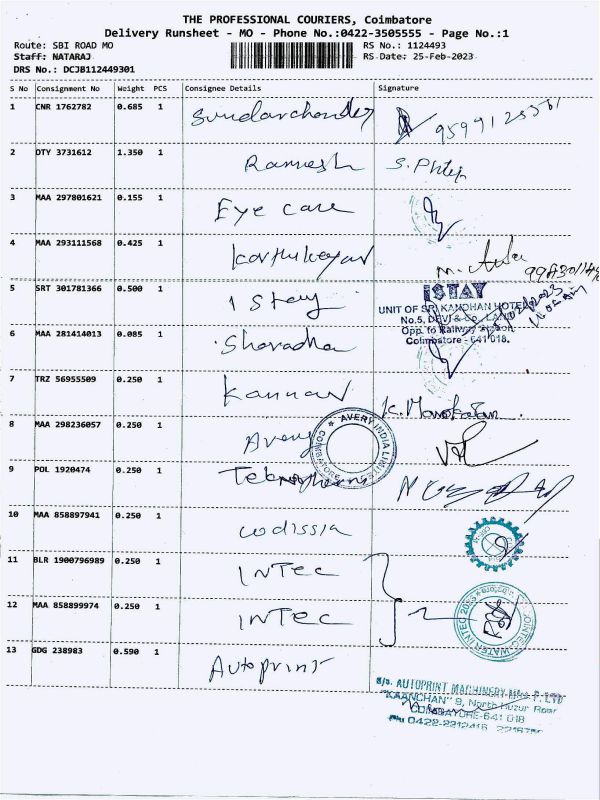 THE PROFESSIONAL COURIERS, Coimbatore
Delivery Runsheet - MO - Phone No.:0422-3505555 - Page No.:1
Route: SBI ROAD MO RS No.: 1124493
Staff: NATARAJ RS Date: 25-Feb-2023
DRS No.: DCJB112449301
S No Consignment No Weight PCS Consignee Details Signature
1 CNR 1762782 0.685 1
2 DTY 3731612 1.350 1 Ramesh
3 MAA 297801621 0.155 1 Eye care
4 MAA 293111568 0.425 1 karthikeyan
5 SRT 301781366 0.500 1 I Stay
iSTAY
UNIT OF SRI KANDHAN HOTELS
No.5, DEVI & Co., LANE
Opp. to Railway Station
Coimbatore - 641 018.
6 MAA 281414013 0.085 1 Sharadha
7 TRZ 56955509 0.250 1 kannan K. Manokaran
8 MAA 298236057 0.250 1 Avery
AVERY INDIA LIMITED
COIMBATORE
9 POL 1920474 0.250 1
10 MAA 858897941 0.250 1 codissia
11 BLR 1900796989 0.250 1 INTEC
12 MAA 858899974 0.250 1 INTEC
13 GDG 238983 0.590 1 Autoprint
AUTOPRINT MACHINERY
"KAANCHAN" 9, North Huzur Road
COIMBATORE-641 018
0422-2212416